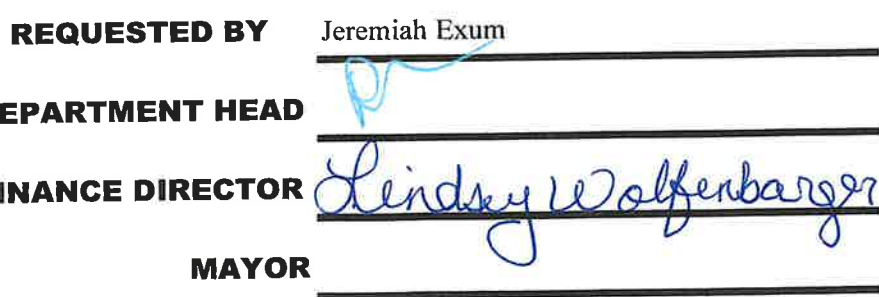 REQUESTED BY Jeremiah Exum
EPARTMENT HEAD
INANCE DIRECTOR Lindsey Wolfenbarger
MAYOR